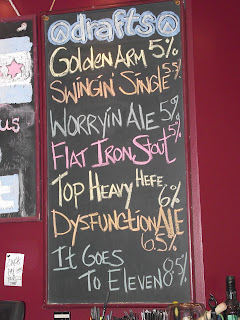 drafts
Golden Arm 5%
Swingin' Single 5.5%
Worryin Ale 5%
Flat Iron Stout 5%
Top Heavy Hefe 6%
Dysfunction Ale
6.5%
It Goes
To Eleven 8.5%
us